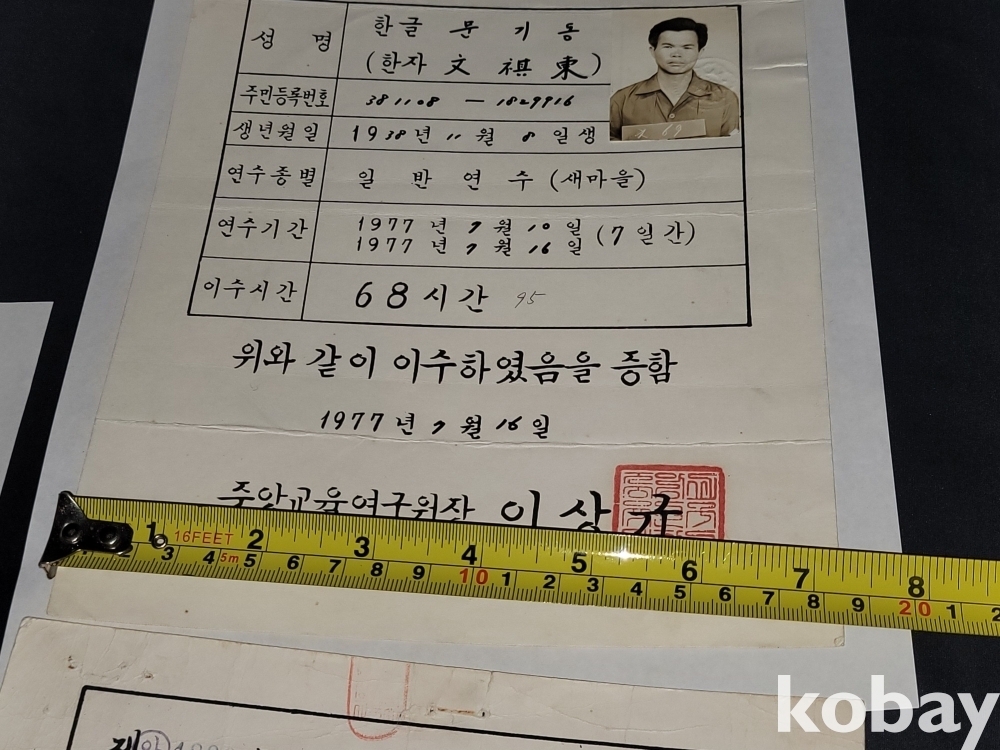 성 명 한글 문 기 동
(한자 文 祺 東)
주민등록번호 381108 — 1829916
생년월일 1938년 11월 8일생
연수종별 일 반 연 수 (새마을)
연수기간 1977년 7월 10일
1977년 7월 16일 (7일간)
이수시간 68시간 95
위와 같이 이수하였음을 증함
1977년 7월 16일
중앙교육연구원장 이상규
1 16FEET 2 3 4 5 6 7 8
3 4 5m 5 6 7 8 9 10 1 2 3 4 5 6 7 8 9 20 1 2
kobay